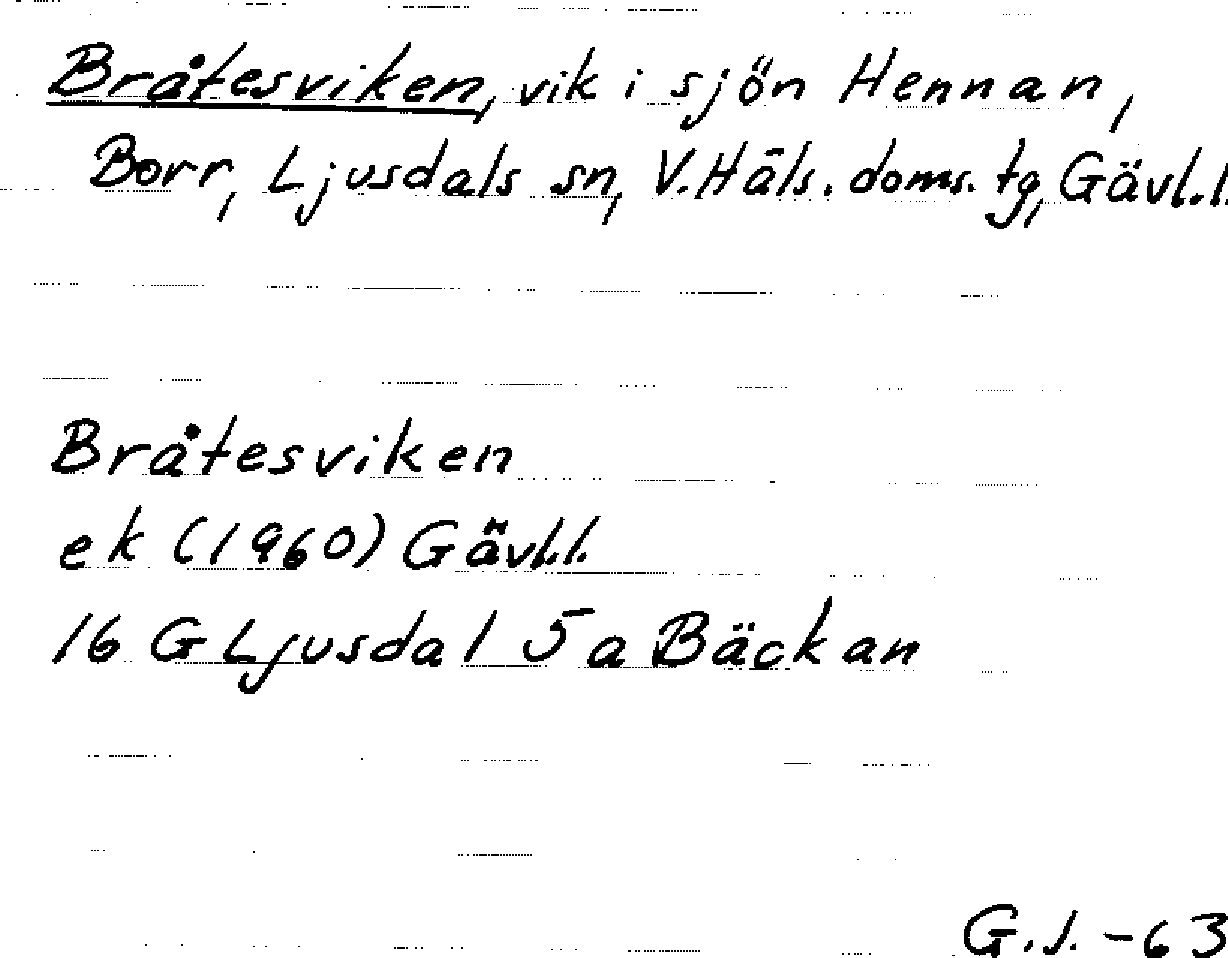 Bråtesviken, vik i sjön Hennan,
Borr, Ljusdals sn, V.Häls. doms. tg, Gävl.l.
Bråtesviken
ek (1960) Gävl.l.
16 G Ljusdal 5a Bäckan
G.J. -63